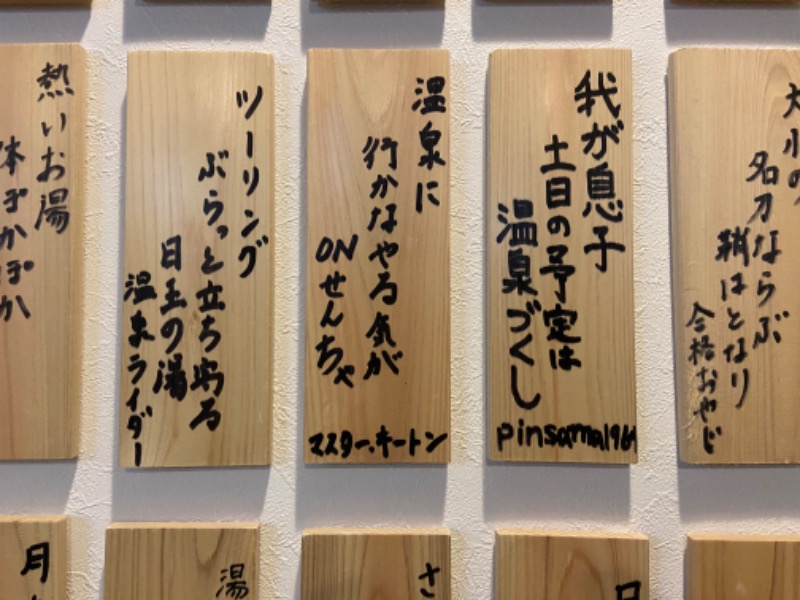 大小の
名刀ならぶ
鞘はとなり
合格おやじ
我が息子
土日の予定は
温泉づくし
pinsama1961
温泉に
行かなやる気が
ONせんちゃ
マスター、キートン
ツーリング
ぶらっと立ち寄る
日王の湯
温泉ライダー
熱いお湯
体ぽかぽか
さ
湯
月